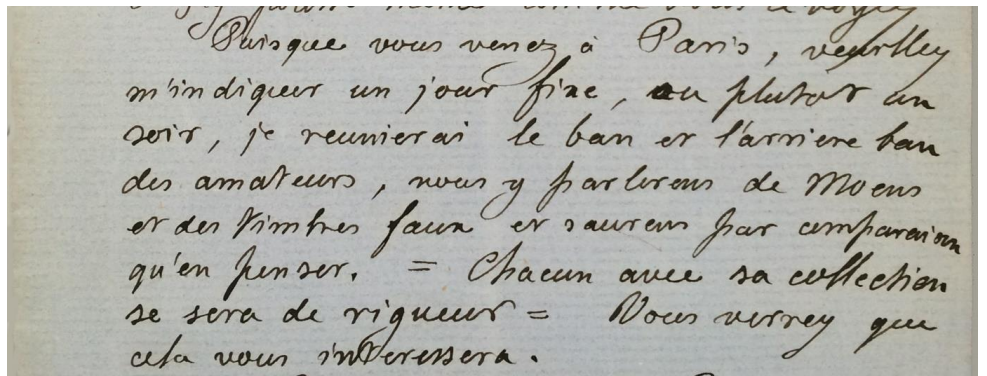 Puisque vous venez à Paris, veuilley
m'indiquer un jour fixe, ou plutot un
soir, je reunierai le ban et l'arriere ban
des amateurs, nous y parlerons de Moens
et des timbres faux et saurons par comparaison
qu'en penser. = Chacun avec sa collection
se sera de rigueur = Vous verrey que
cela vous interessera.